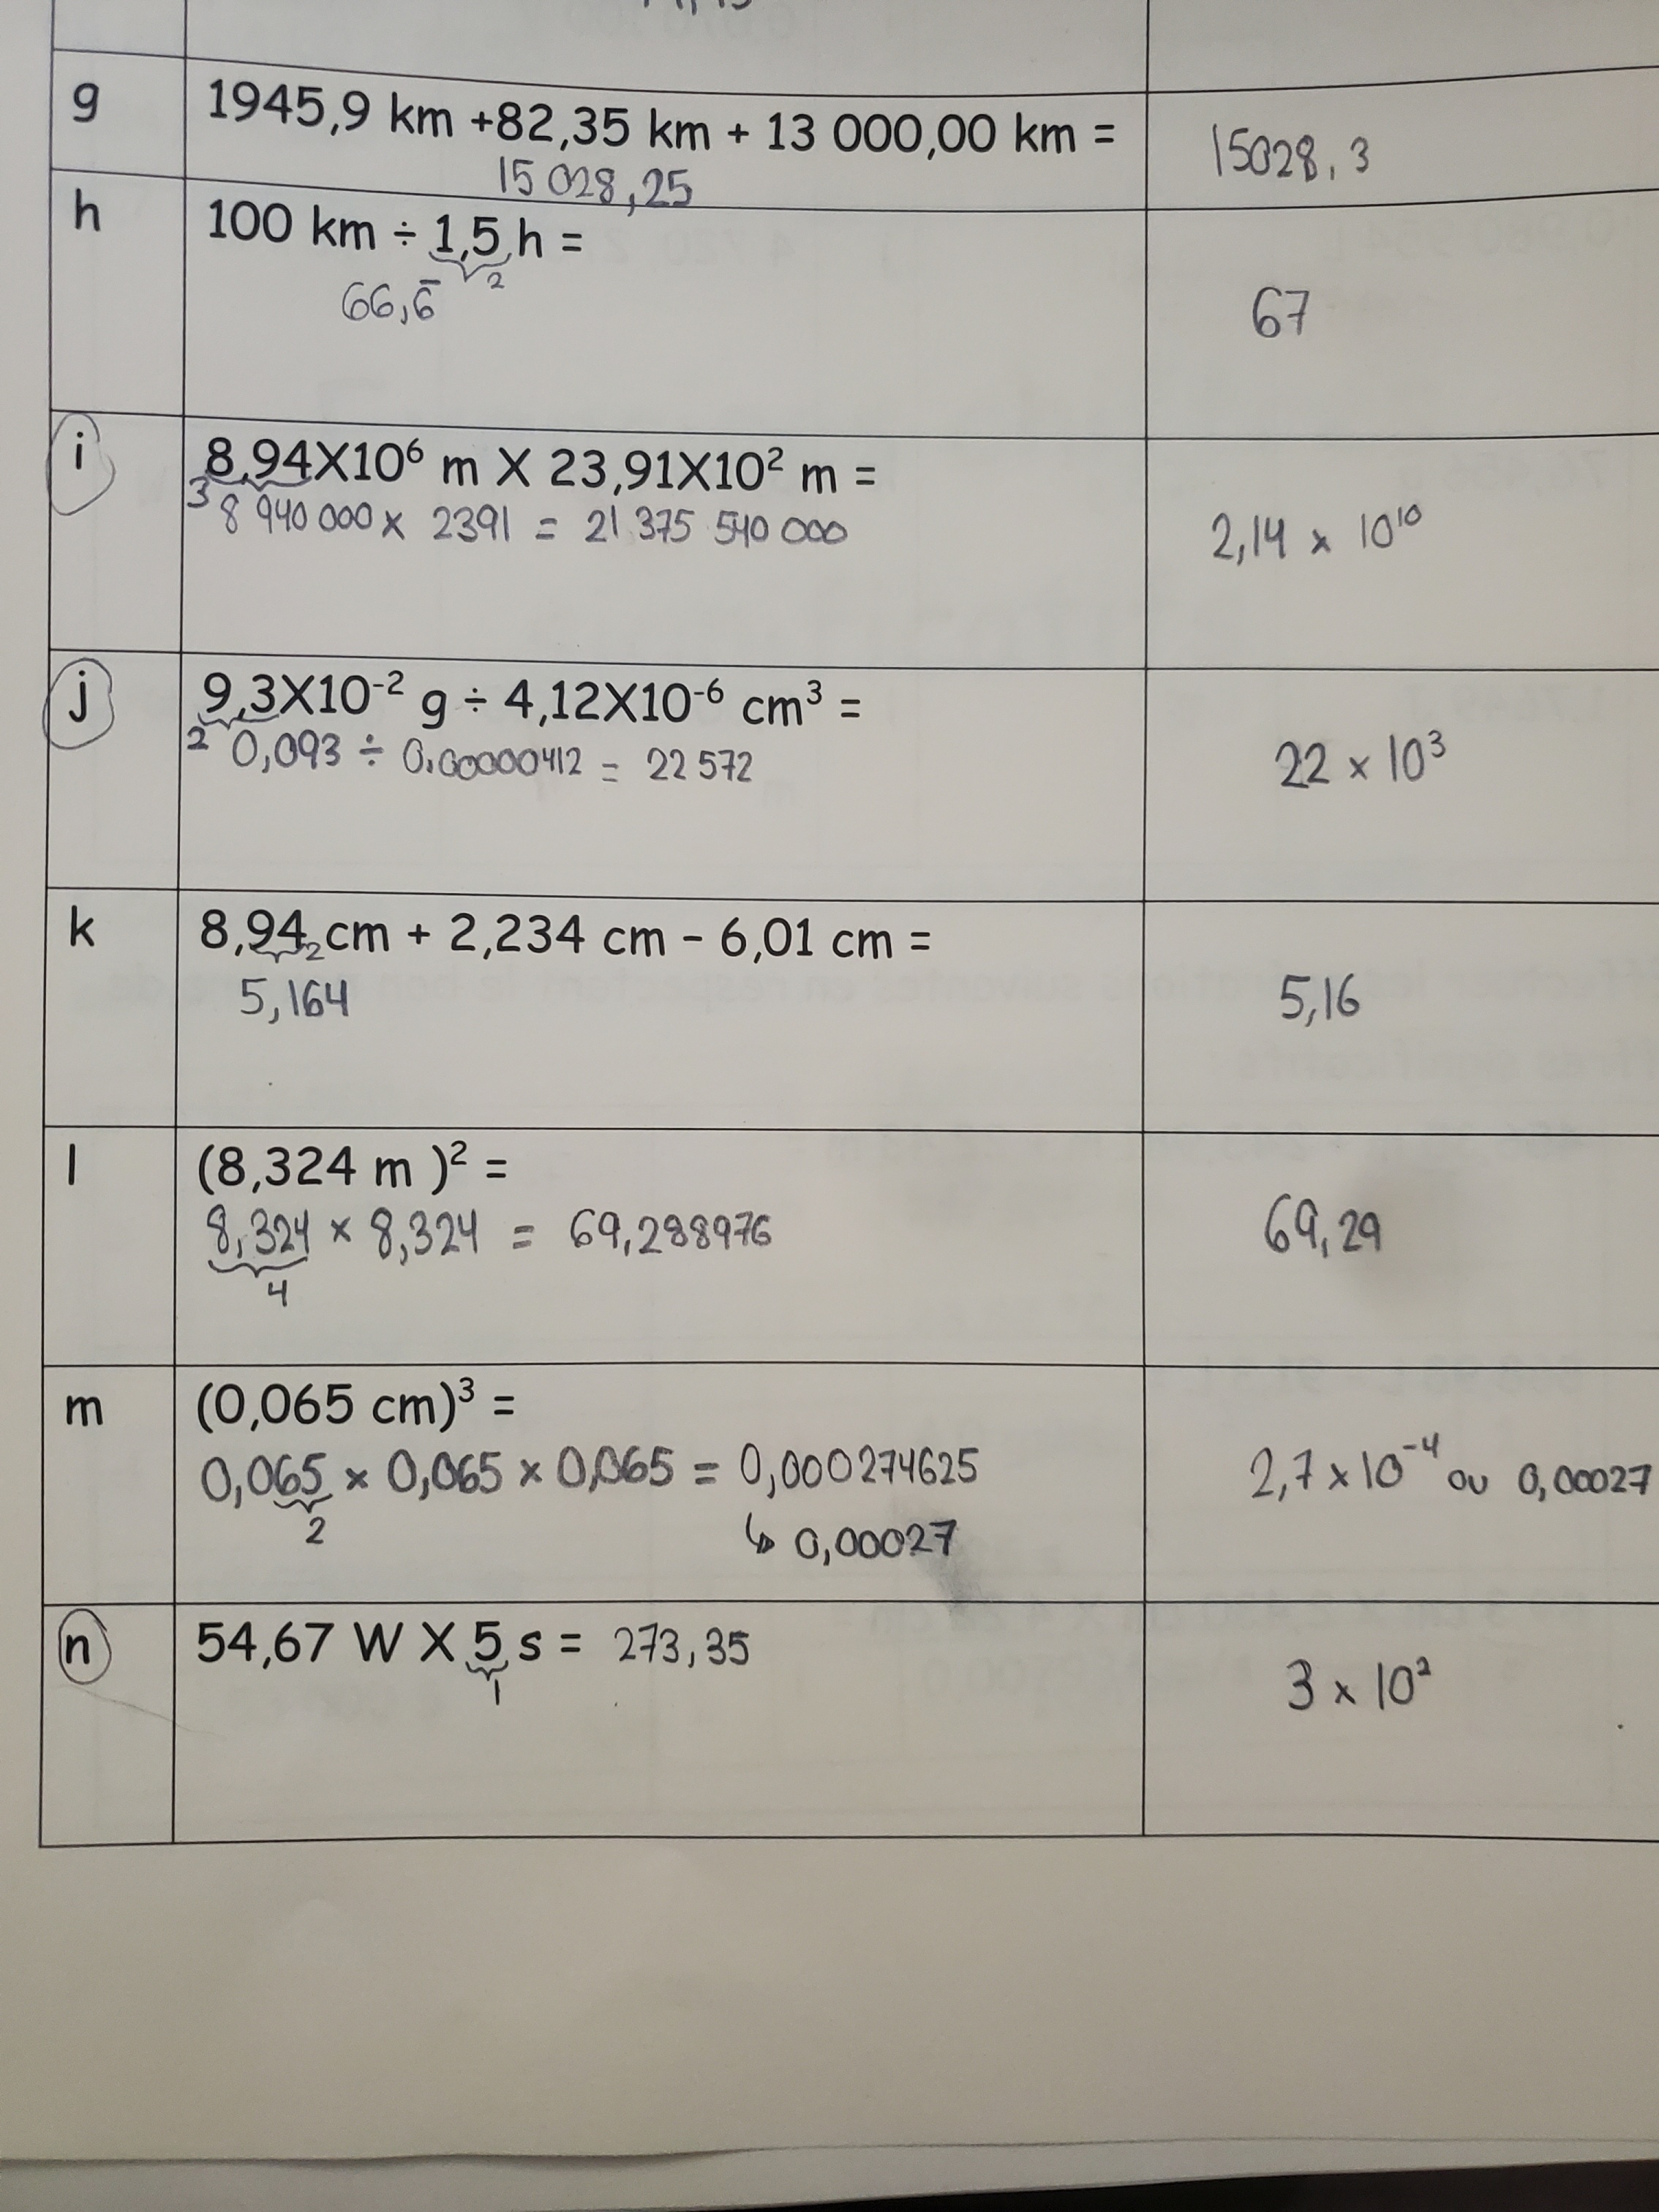 g
1945,9 km +82,35 km + 13 000,00 km =
15 028,25
15028,3
h
100 km ÷ 1,5 h =
2
66,6̅
67
i
8,94X10⁶ m X 23,91X10² m =
3
8 940 000 x 2391 = 21 375 540 000
2,14 x 10¹⁰
j
9,3X10⁻² g ÷ 4,12X10⁻⁶ cm³ =
2
0,093 ÷ 0,00000412 = 22 572
22 x 10³
k
8,94 cm + 2,234 cm - 6,01 cm =
2
5,164
5,16
l
(8,324 m )² =
8,324 x 8,324 = 69,288976
4
69,29
m
(0,065 cm)³ =
0,065 x 0,065 x 0,065 = 0,000274625
2
↳ 0,00027
2,7 x 10⁻⁴ ou 0,00027
n
54,67 W X 5 s = 273,35
1
3 x 10²